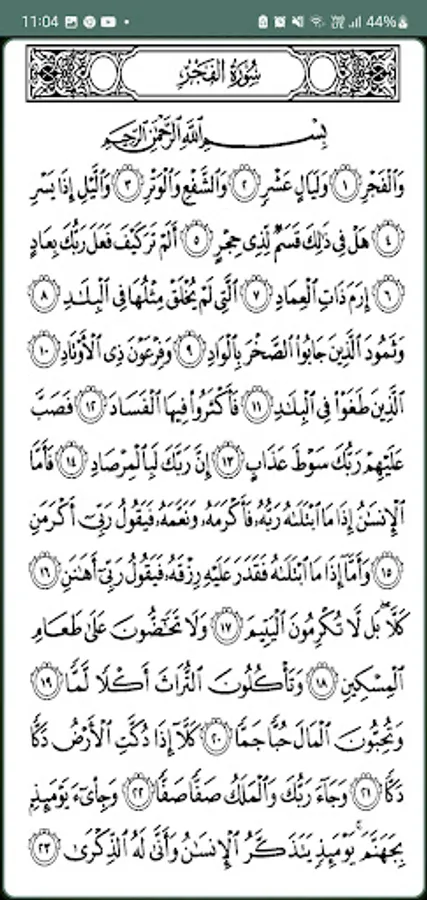 11:04 44%
سُورَةُ الْفَجْرِ
بِسْمِ اللَّهِ الرَّحْمَٰنِ الرَّحِيمِ
وَالْفَجْرِ ١ وَلَيَالٍ عَشْرٍ ٢ وَالشَّفْعِ وَالْوَتْرِ ٣ وَاللَّيْلِ إِذَا يَسْرِ
٤ هَلْ فِي ذَٰلِكَ قَسَمٌ لِّذِي حِجْرٍ ٥ أَلَمْ تَرَ كَيْفَ فَعَلَ رَبُّكَ بِعَادٍ
٦ إِرَمَ ذَاتِ الْعِمَادِ ٧ الَّتِي لَمْ يُخْلَقْ مِثْلُهَا فِي الْبِلَٰدِ ٨
وَثَمُودَ الَّذِينَ جَابُوا الصَّخْرَ بِالْوَادِ ٩ وَفِرْعَوْنَ ذِي الْأَوْتَادِ ١٠
الَّذِينَ طَغَوْا فِي الْبِلَٰدِ ١١ فَأَكْثَرُوا فِيهَا الْفَسَادَ ١٢ فَصَبَّ
عَلَيْهِمْ رَبُّكَ سَوْطَ عَذَابٍ ١٣ إِنَّ رَبَّكَ لَبِالْمِرْصَادِ ١٤ فَأَمَّا
الْإِنسَٰنُ إِذَا مَا ابْتَلَىٰهُ رَبُّهُۥ فَأَكْرَمَهُۥ وَنَعَّمَهُۥ فَيَقُولُ رَبِّي أَكْرَمَنِ
١٥ وَأَمَّا إِذَا مَا ابْتَلَىٰهُ فَقَدَرَ عَلَيْهِ رِزْقَهُۥ فَيَقُولُ رَبِّي أَهَٰنَنِ ١٦
كَلَّا ۖ بَل لَّا تُكْرِمُونَ الْيَتِيمَ ١٧ وَلَا تَحَٰضُّونَ عَلَىٰ طَعَامِ
الْمِسْكِينِ ١٨ وَتَأْكُلُونَ التُّرَاثَ أَكْلًا لَّمًّا ١٩
وَتُحِبُّونَ الْمَالَ حُبًّا جَمًّا ٢٠ كَلَّا إِذَا دُكَّتِ الْأَرْضُ دَكًّا
دَكًّا ٢١ وَجَاءَ رَبُّكَ وَالْمَلَكُ صَفًّا صَفًّا ٢٢ وَجِا۟يٓءَ يَوْمَئِذٍ
بِجَهَنَّمَ ۚ يَوْمَئِذٍ يَتَذَكَّرُ الْإِنسَٰنُ وَأَنَّىٰ لَهُ الذِّكْرَىٰ ٢٣